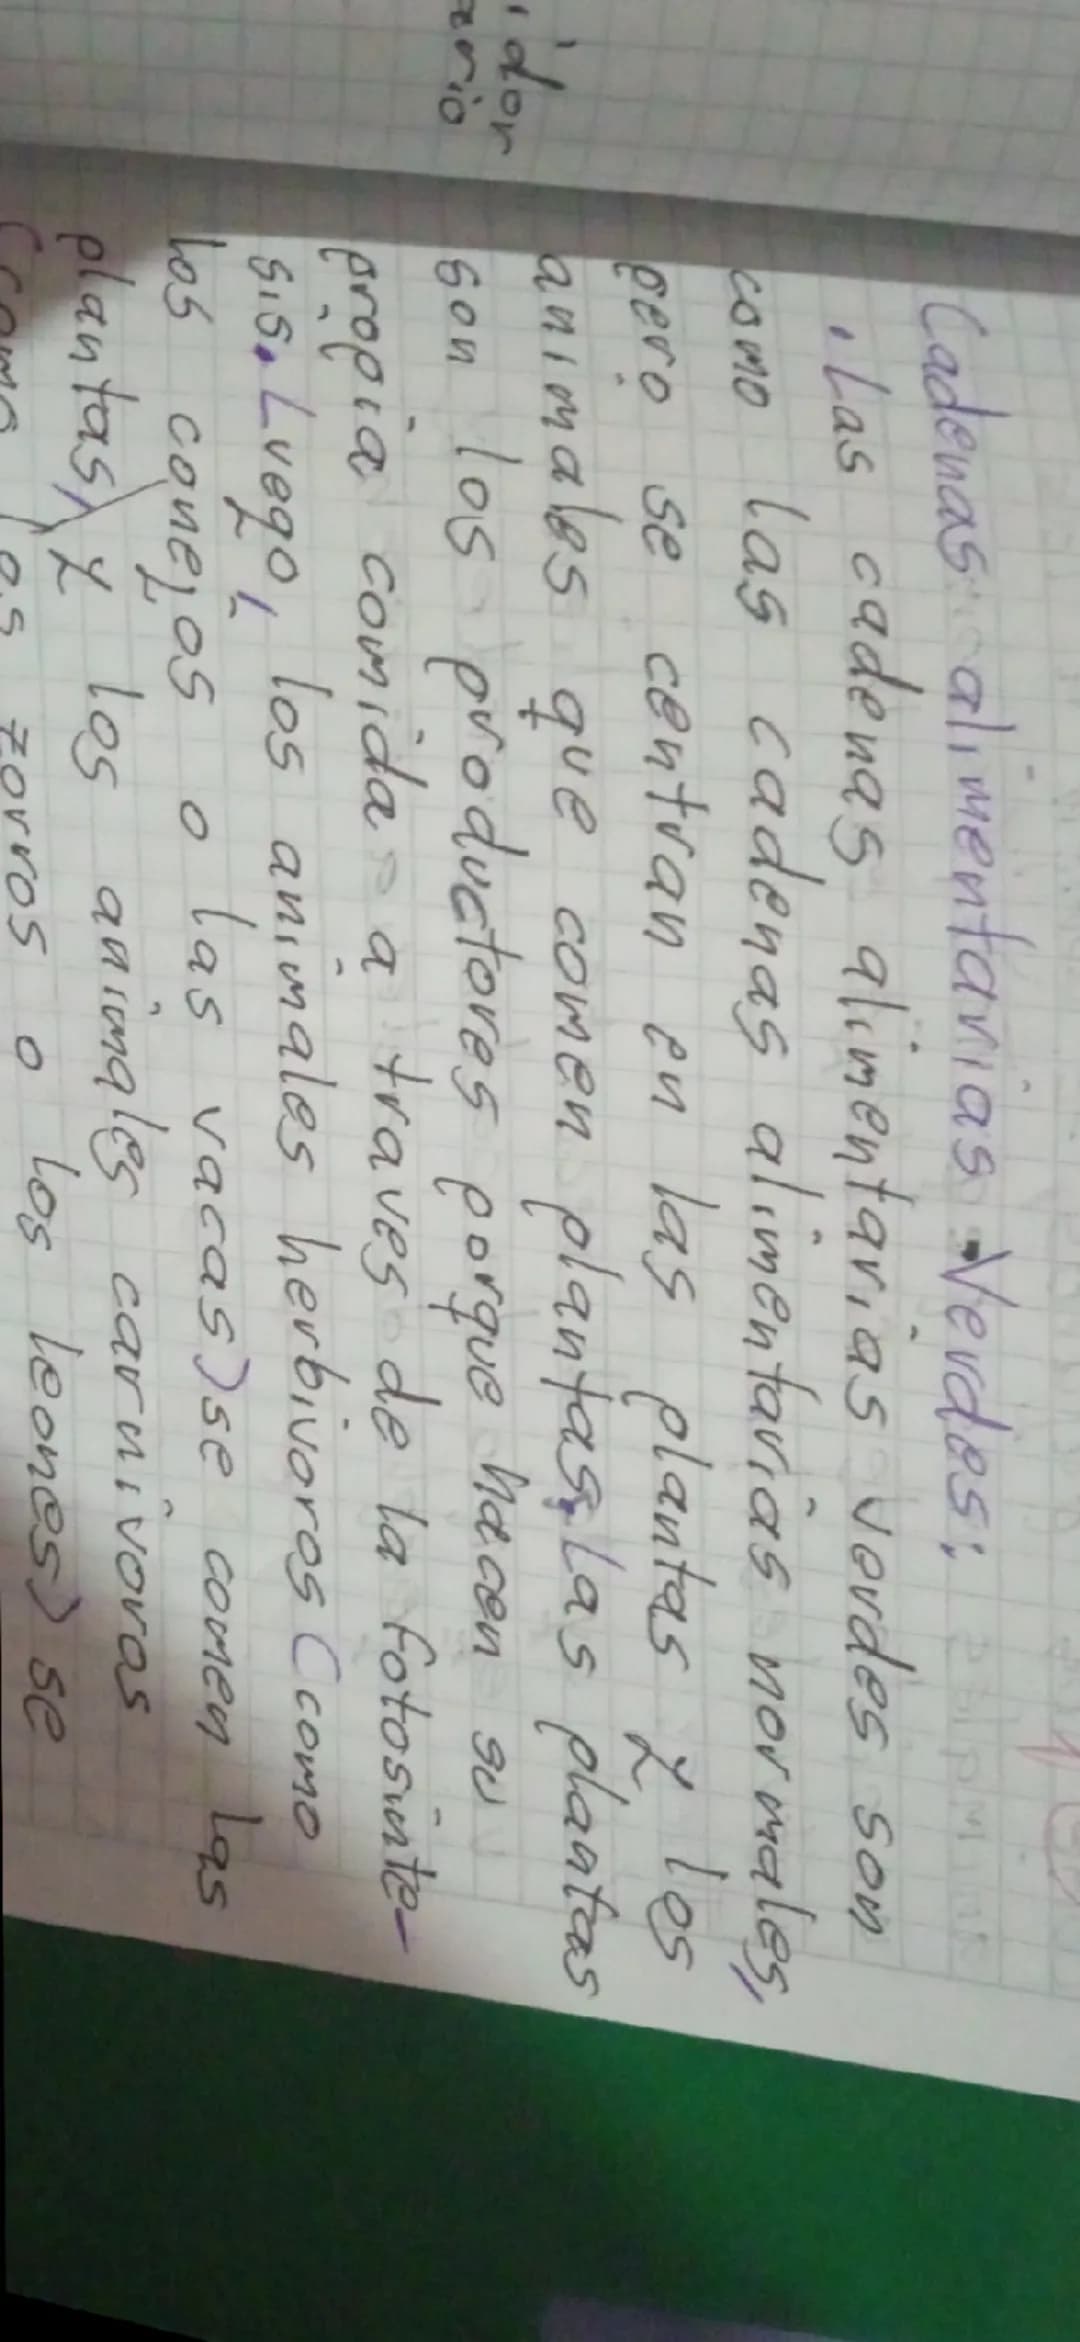 idor
ario
Cadenas alimentarias Verdes:
. Las cadenas alimentarias verdes son
como las cadenas alimentarias normales,
pero se centran en las plantas y los
animales que comen plantas. Las plantas
son los productores porque hacen su
propia comida a traves de la fotosinte-
sis. Luego, los animales herbivoros (como
los conejos o las vacas) se comen las
plantas, y los animales carnivoros
(como los zorros o los leones) se